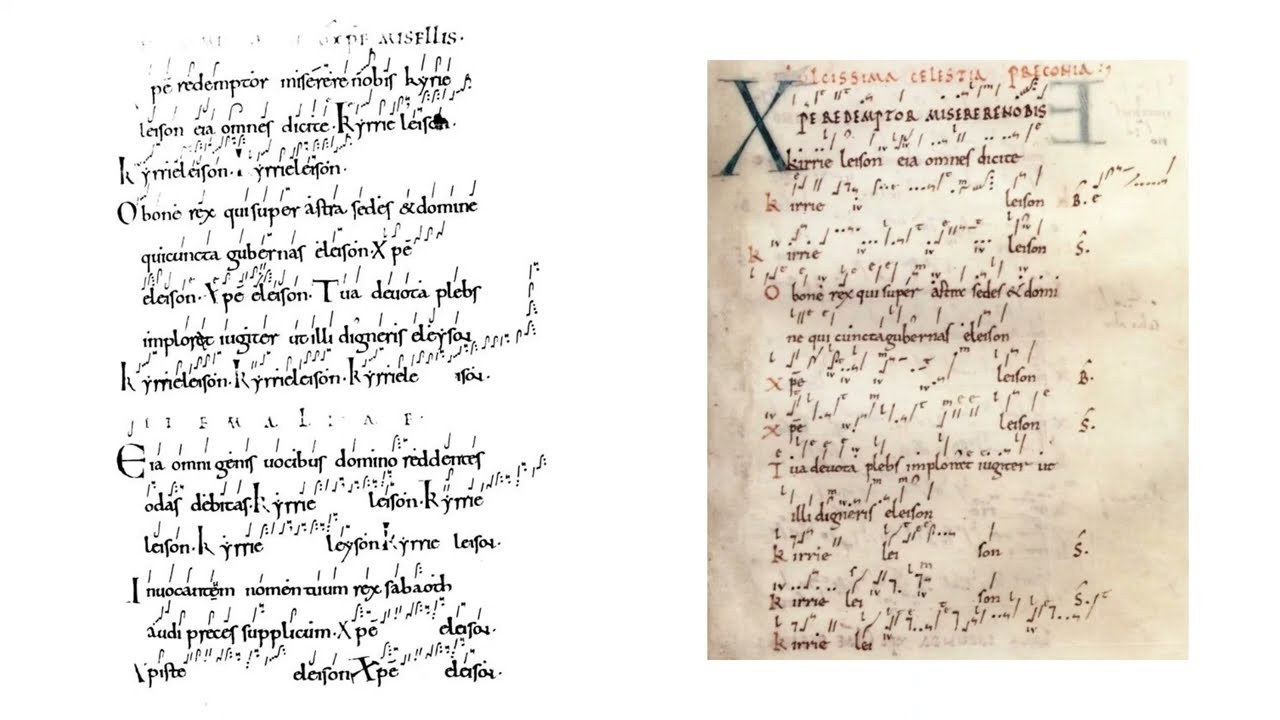 xpe misellis.
xpē redemptor miserere nobis kyrie
leison eia omnes dicite. Kyrrie leison.
Kyrrieleison. Kyrrieleison.
O bone rex qui super astra sedes & domine
qui cuncta gubernas eleison. Xpē
eleison. Xpē eleison. Tua devota plebs
imploret iugiter ut illi digneris eleyson
Kyrrieleison. Kyrrieleison. Kyrriele ison.
Eia omnigenis uocibus domino reddentes
odas debitas. Kyrrie leison. Kyrrie
leison. Kyrrie leyson Kyrrie leison.
Inuocantem nomen tuum rex sabaoth
audi preces supplicum. Xpē eleison.
Xpiste eleison Xpē eleison.
LCISSIMA CELESTIA PRECONIA
XPE REDEMPTOR MISERERE NOBIS E
kirrie leison eia omnes dicite
kirrie leison B.
kirrie leison S.
O bone rex qui super astra sedes & domi
ne qui cuncta gubernas eleison
xpē leison B.
xpē leison S.
Tua deuota plebs imploret iugiter ut
illi digneris eleison
kirrie lei son S.
kirrie lei son S.
kirrie lei